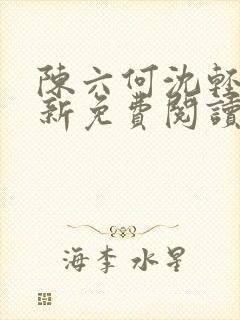 陳六何沈輕
新免費閱讀
海李 水星